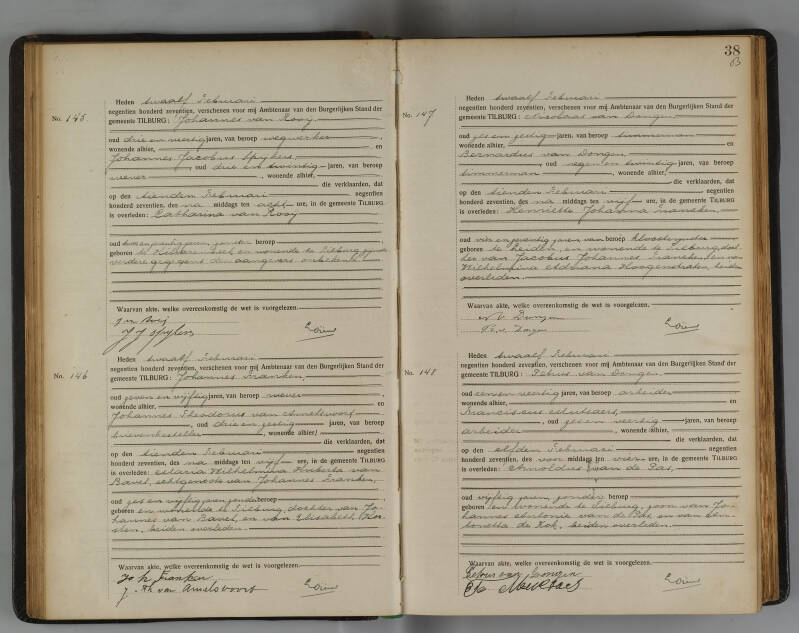 Heden twaalf Februari
negentien honderd zeventien, verschenen voor mij Ambtenaar van den Burgerlijken Stand der
No. 145. gemeente TILBURG: Johannes van Rooij
oud drie en veertig jaren, van beroep wegwerker
wonende alhier, en
Johannes Jacobus Spijkers
oud drie en twintig jaren, van beroep
wever, wonende alhier,
die verklaarden, dat
op den tienden Februari negentien
honderd zeventien, des na middags ten acht ure, in de gemeente TILBURG
is overleden: Catharina van Rooij
oud jaren, zonder beroep
geboren te en wonende te Tilburg, zijnde
verdere gegevens den aangevers onbekend
Waarvan akte, welke overeenkomstig de wet is voorgelezen.
J v Rooij
J J Spijkers
Heden twaalf Februari
negentien honderd zeventien, verschenen voor mij Ambtenaar van den Burgerlijken Stand der
No. 146 gemeente TILBURG: Johannes Franken,
oud zeven en vijftig jaren, van beroep wever
wonende alhier, en
Johannes Theodorus van Amelsvoort
oud drie en zestig jaren, van beroep
brievenbesteller, wonende alhier,
die verklaarden, dat
op den tienden Februari negentien
honderd zeventien, des na middags ten vijf ure, in de gemeente TILBURG
is overleden: Maria Wilhelmina Huberta van
Bavel, echtgenoote van Johannes Franken,
oud zes en vijftig jaren, zonder beroep
geboren en wonende te Tilburg, dochter van Jo-
hannes van Bavel, en van Elisabeth
beiden overleden.
Waarvan akte, welke overeenkomstig de wet is voorgelezen.
Joh Franken
J. Th van Amelsvoort
38
Heden twaalf Februari
negentien honderd zeventien, verschenen voor mij Ambtenaar van den Burgerlijken Stand der
No. 147 gemeente TILBURG: Nicolaas van Dongen,
oud zes en zestig jaren, van beroep timmerman
wonende alhier, en
Bernardus van Dongen,
oud negen en twintig jaren, van beroep
timmerman, wonende alhier,
die verklaarden, dat
op den tienden Februari negentien
honderd zeventien, des na middags ten vijf ure, in de gemeente TILBURG
is overleden: Henriette Johanna Francken,
oud vier en zeventig jaren, van beroep kloosterzuster
geboren te Leiden, en wonende te Tilburg, doch-
ter van Jacobus Johannes Francken, en van
Wilhelmina Adriana Hoogenstraten, beiden
overleden.
Waarvan akte, welke overeenkomstig de wet is voorgelezen.
N v. Dongen
B. v. Dongen
Heden twaalf Februari
negentien honderd zeventien, verschenen voor mij Ambtenaar van den Burgerlijken Stand der
No. 148 gemeente TILBURG: Petrus van Dongen,
oud een en veertig jaren, van beroep arbeider
wonende alhier, en
Franciscus
oud zes en veertig jaren, van beroep
arbeider, wonende alhier,
die verklaarden, dat
op den elfden Februari negentien
honderd zeventien, des van middags ten vier ure, in de gemeente TILBURG
is overleden: Arnoldus van de Pas,
oud vijftig jaren, zonder beroep
geboren en wonende te Tilburg, zoon van Jo-
hannes Antonie van de Pas en van An-
tonetta de Kok, beiden overleden.
Waarvan akte, welke overeenkomstig de wet is voorgelezen.
Petrus van Dongen